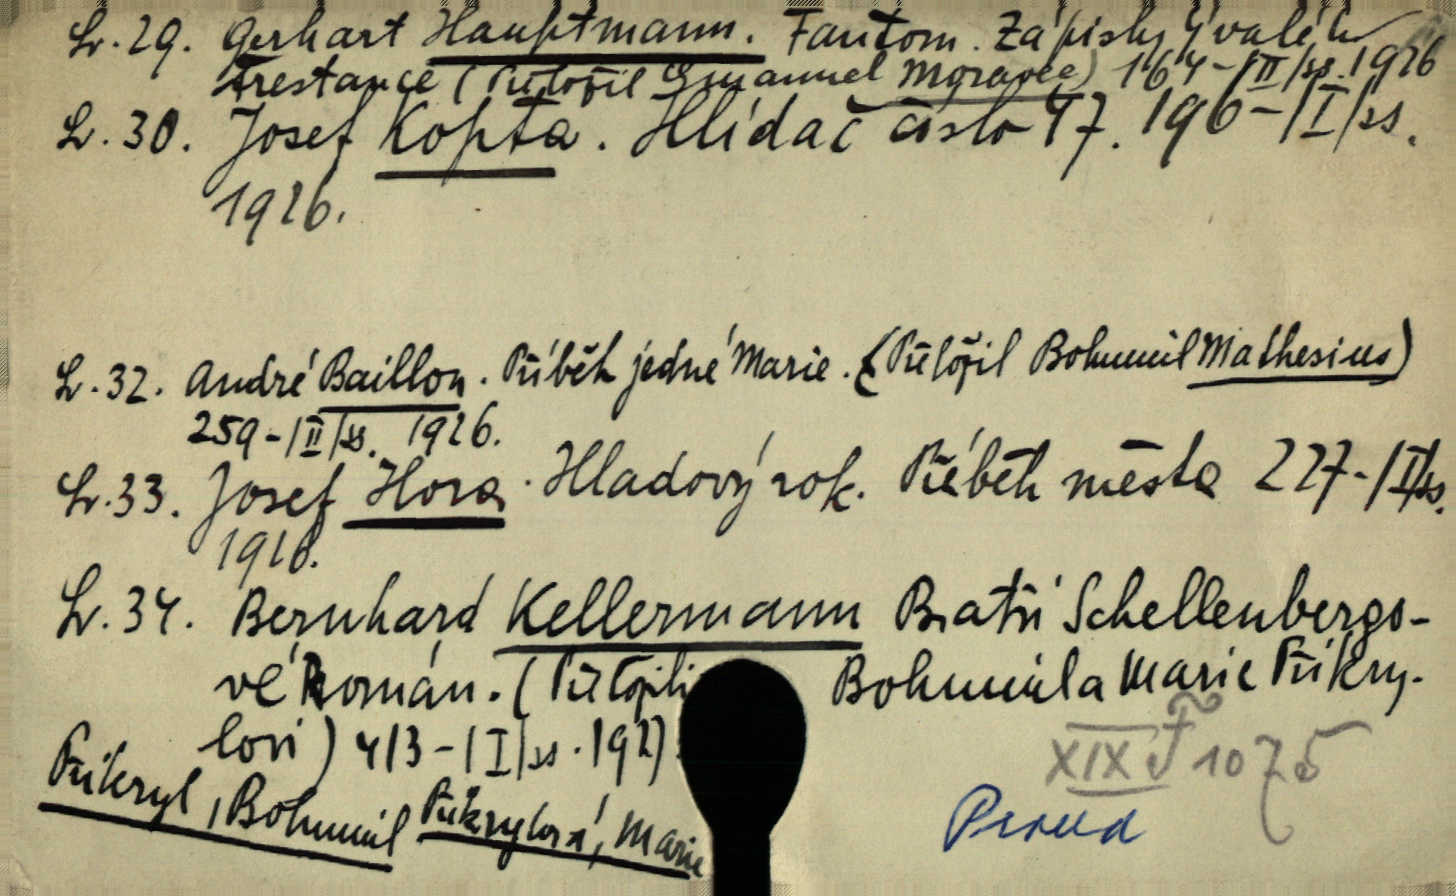 Sv. 29. Gerhart Hauptmann. Fantom. Zápisky bývaléh
trestance (Přeložil Emanuel Moravec) 164-/II/ss. 1926
Sv. 30. Josef Kopta. Hlídač číslo 47. 196-/I/ss.
1926.
Sv. 32. André Baillon. Příběh jedné Marie. (Přeložil Bohumil Mathesius)
259-/II/ss. 1926.
Sv. 33. Josef Hora. Hladový rok. Příběh města 227-/I/ss.
1926.
Sv. 34. Bernhard Kellermann Bratři Schellenbergo-
vé Román. (Přeložili Bohumil a Marie Přikry-
lovi) 413-/I/ss. 1927.
Přikryl, Bohumil Přikrylová, Marie
XIX F 1075
Proud